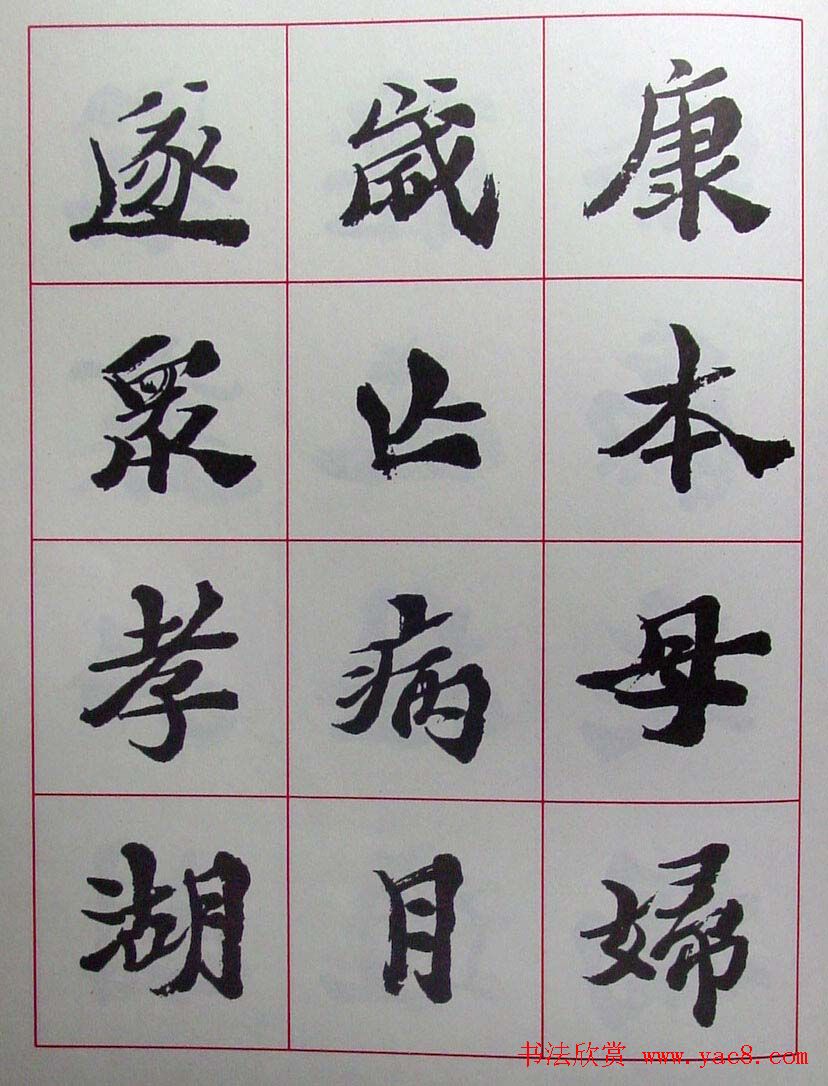 康本母婦
歲止病月
遂眾孝湖
书法欣赏 www.yac8.com